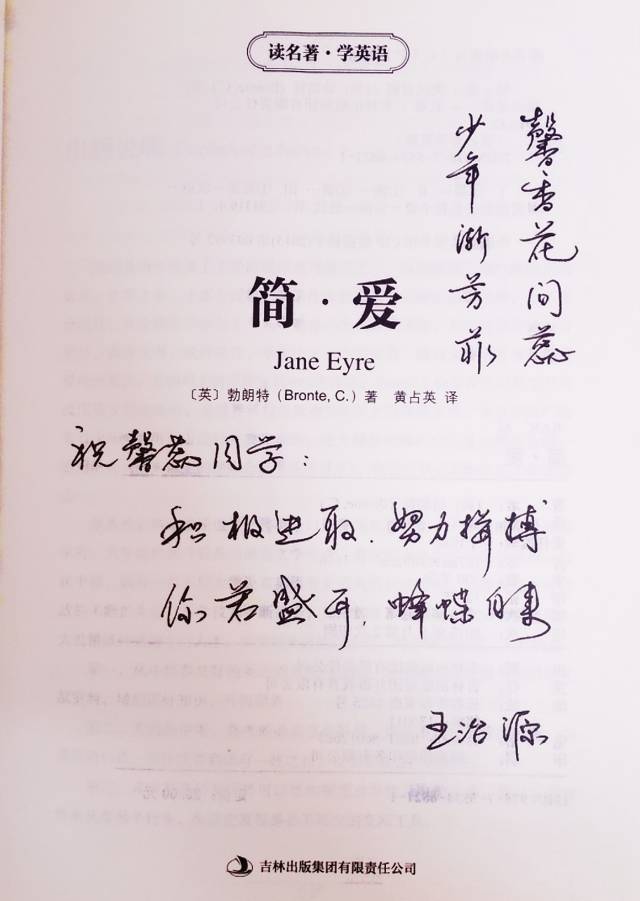 读名著·学英语
馨香花间蕊
少年渐芳菲
简·爱
Jane Eyre
〔英〕勃朗特（Bronte, C.）著 黄占英 译
祝馨蕊同学：
积极进取.努力拼搏
你若盛开,蜂蝶自来
王治源
吉林出版集团有限责任公司